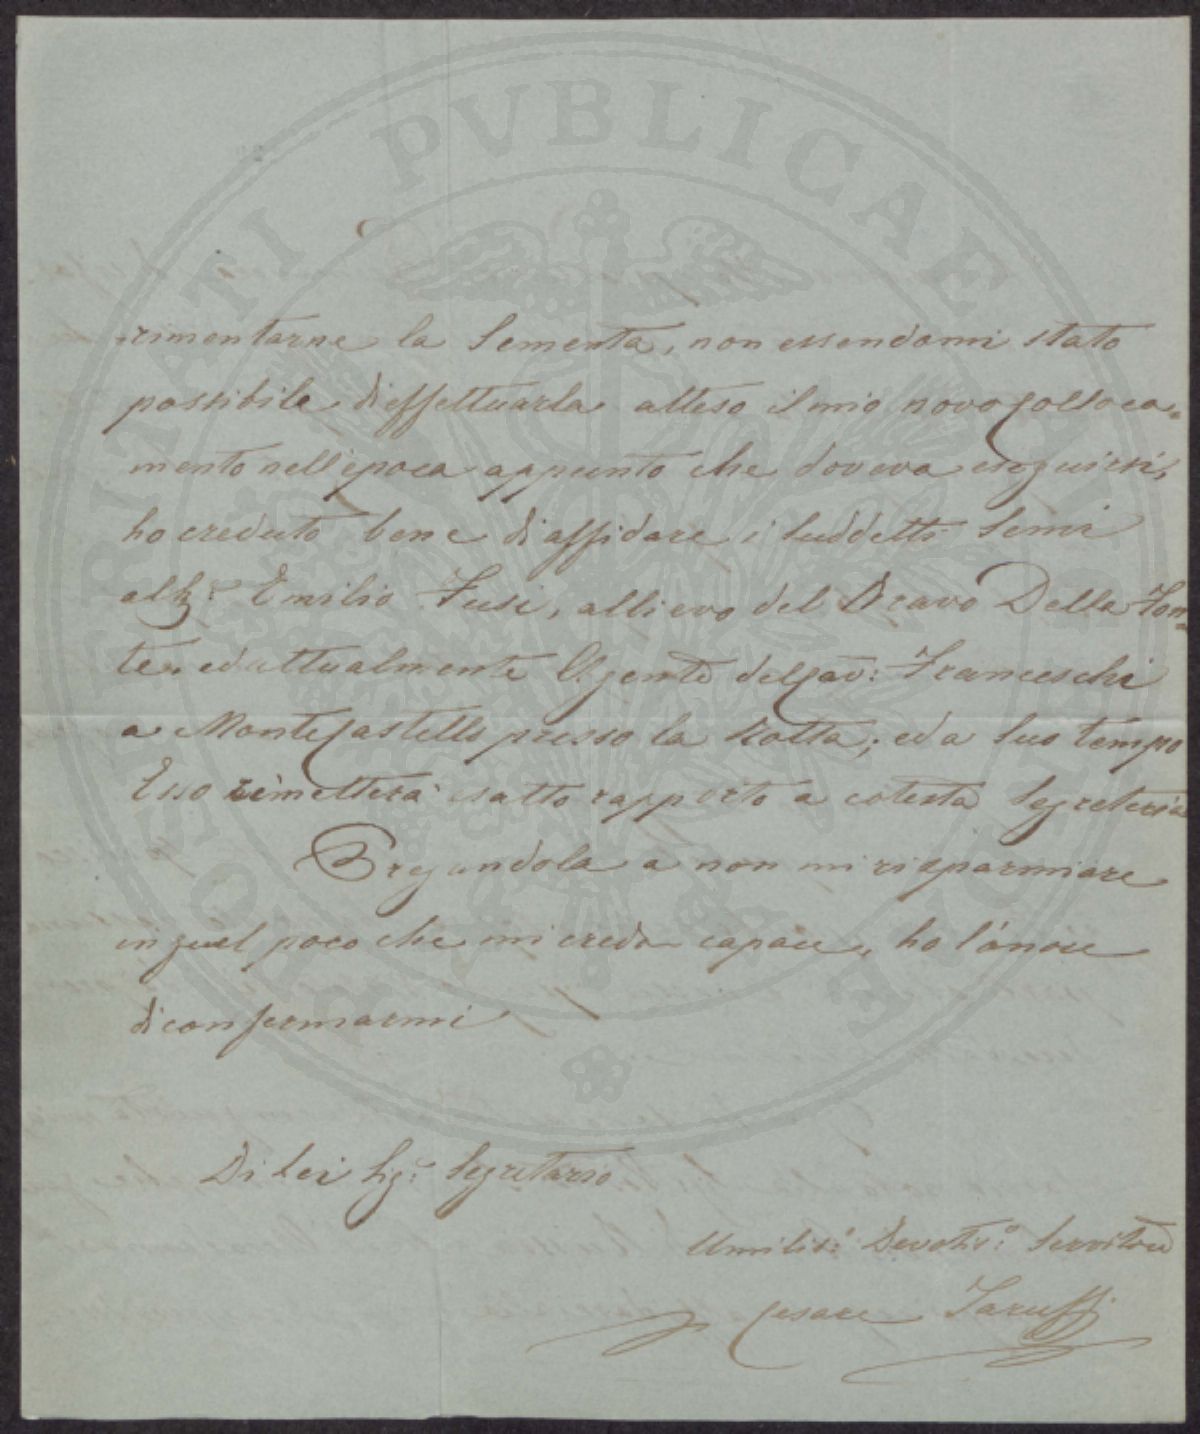 PROSPERITATI PVBLICAE AVGENDAE
rimentarne la Sementa, non essendomi stato
possibile di effettuarla atteso il mio novo colloca=
mento nell'epoca appunto che doveva eseguirsi,
ho creduto bene di affidare i suddetti Semi
al Sg.r Emilio Fusi, allievo del Bravo Della Fon=
te, ed attualmente Agente del Cav: Franceschi
a MonteCastello presso la Rotta; ed a suo tempo
Esso rimetterà esatto rapporto a cotesta Segreteria
Pregandola a non mi risparmiare
in quel poco che mi creda capace, ho l'onore
di confermarmi
Di Lei Sig.r Segretario
Umilis.o Devotis.o Servitore
Cesare Taruffi